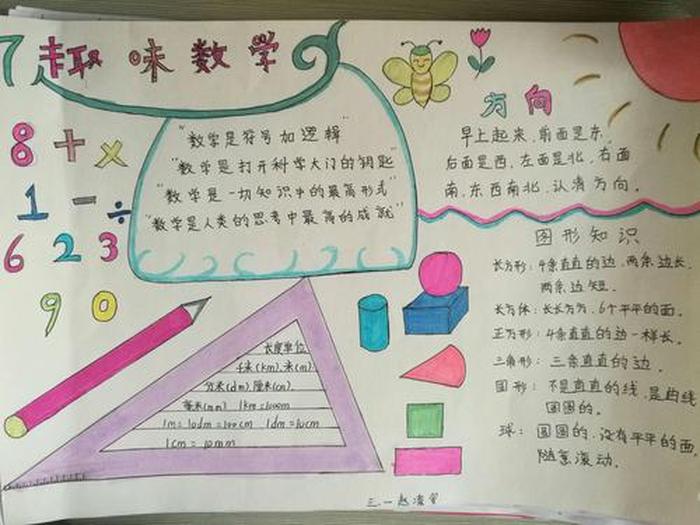 趣味数学
8 + ×
1 - ÷
6 2 3
9 0
"数学是符号加逻辑"
"数学是打开科学大门的钥匙
"数学是一切知识中的最高形式"
"数学是人类的思考中最高的成就"
方向
早上起来,前面是东,
后面是西,左面是北,右面
南,东西南北,认清方向。
图形知识
长方形:4条直直的边,两条边长,
两条边短。
长方体:长长方方,6个平平的面。
正方形:4条直直的边一样长。
三角形:三条直直的边。
圆形:不是直直的线,是曲线
圆圆的。
球:圆圆的,没有平平的面,
随意滚动。
长度单位
千米(km),米(m)
分米(dm) 厘米(cm)
毫米(mm) 1km=1000m
1m=10dm=100cm 1dm=10cm
1cm=10mm
三.一赵